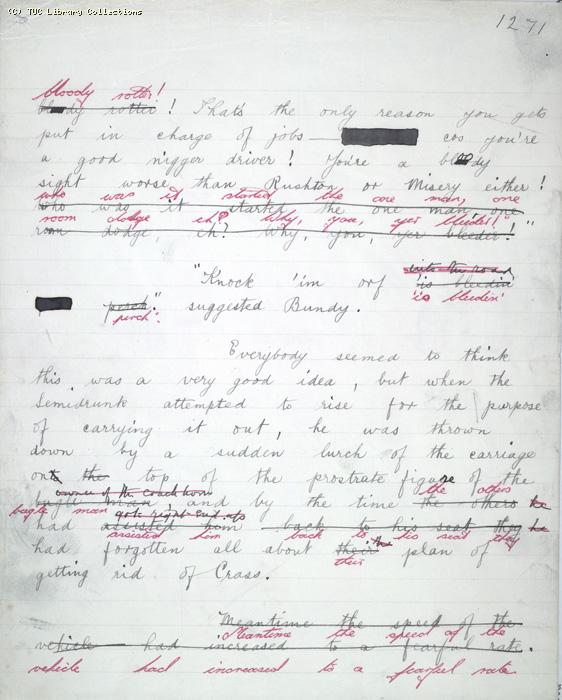 (C) TUC Library Collections
1271
bloody rotter!
bloody rotter! That's the only reason you gets
put in charge of jobs — cos you're
a good nigger driver! You're a bloody
sight worse than Rushton or Misery either!
who was it started the one man, one
who was it started the one man, one
room dodge, eh? Why, you, yer bleeder!"
room dodge, eh? Why, you, yer bleeder!"
into the road
"Knock 'im orf 'is bleedin'
'is bleedin'
perch" suggested Bundy.
perch".
Everybody seemed to think
this was a very good idea, but when the
Semidrunk attempted to rise for the purpose
of carrying it out, he was thrown
down by a sudden lurch of the carriage
on the top of the prostrate figure of the
owner of the coach horn the others
bugle man and by the time the others he
bugle man got right end up
had assisted him back to his seat they he
assisted him back to his seat they
had forgotten all about their the plan of
their
getting rid of Crass.
Meantime the speed of the
Meantime the speed of the
vehicle had increased to a fearful rate.
vehicle had increased to a fearful rate